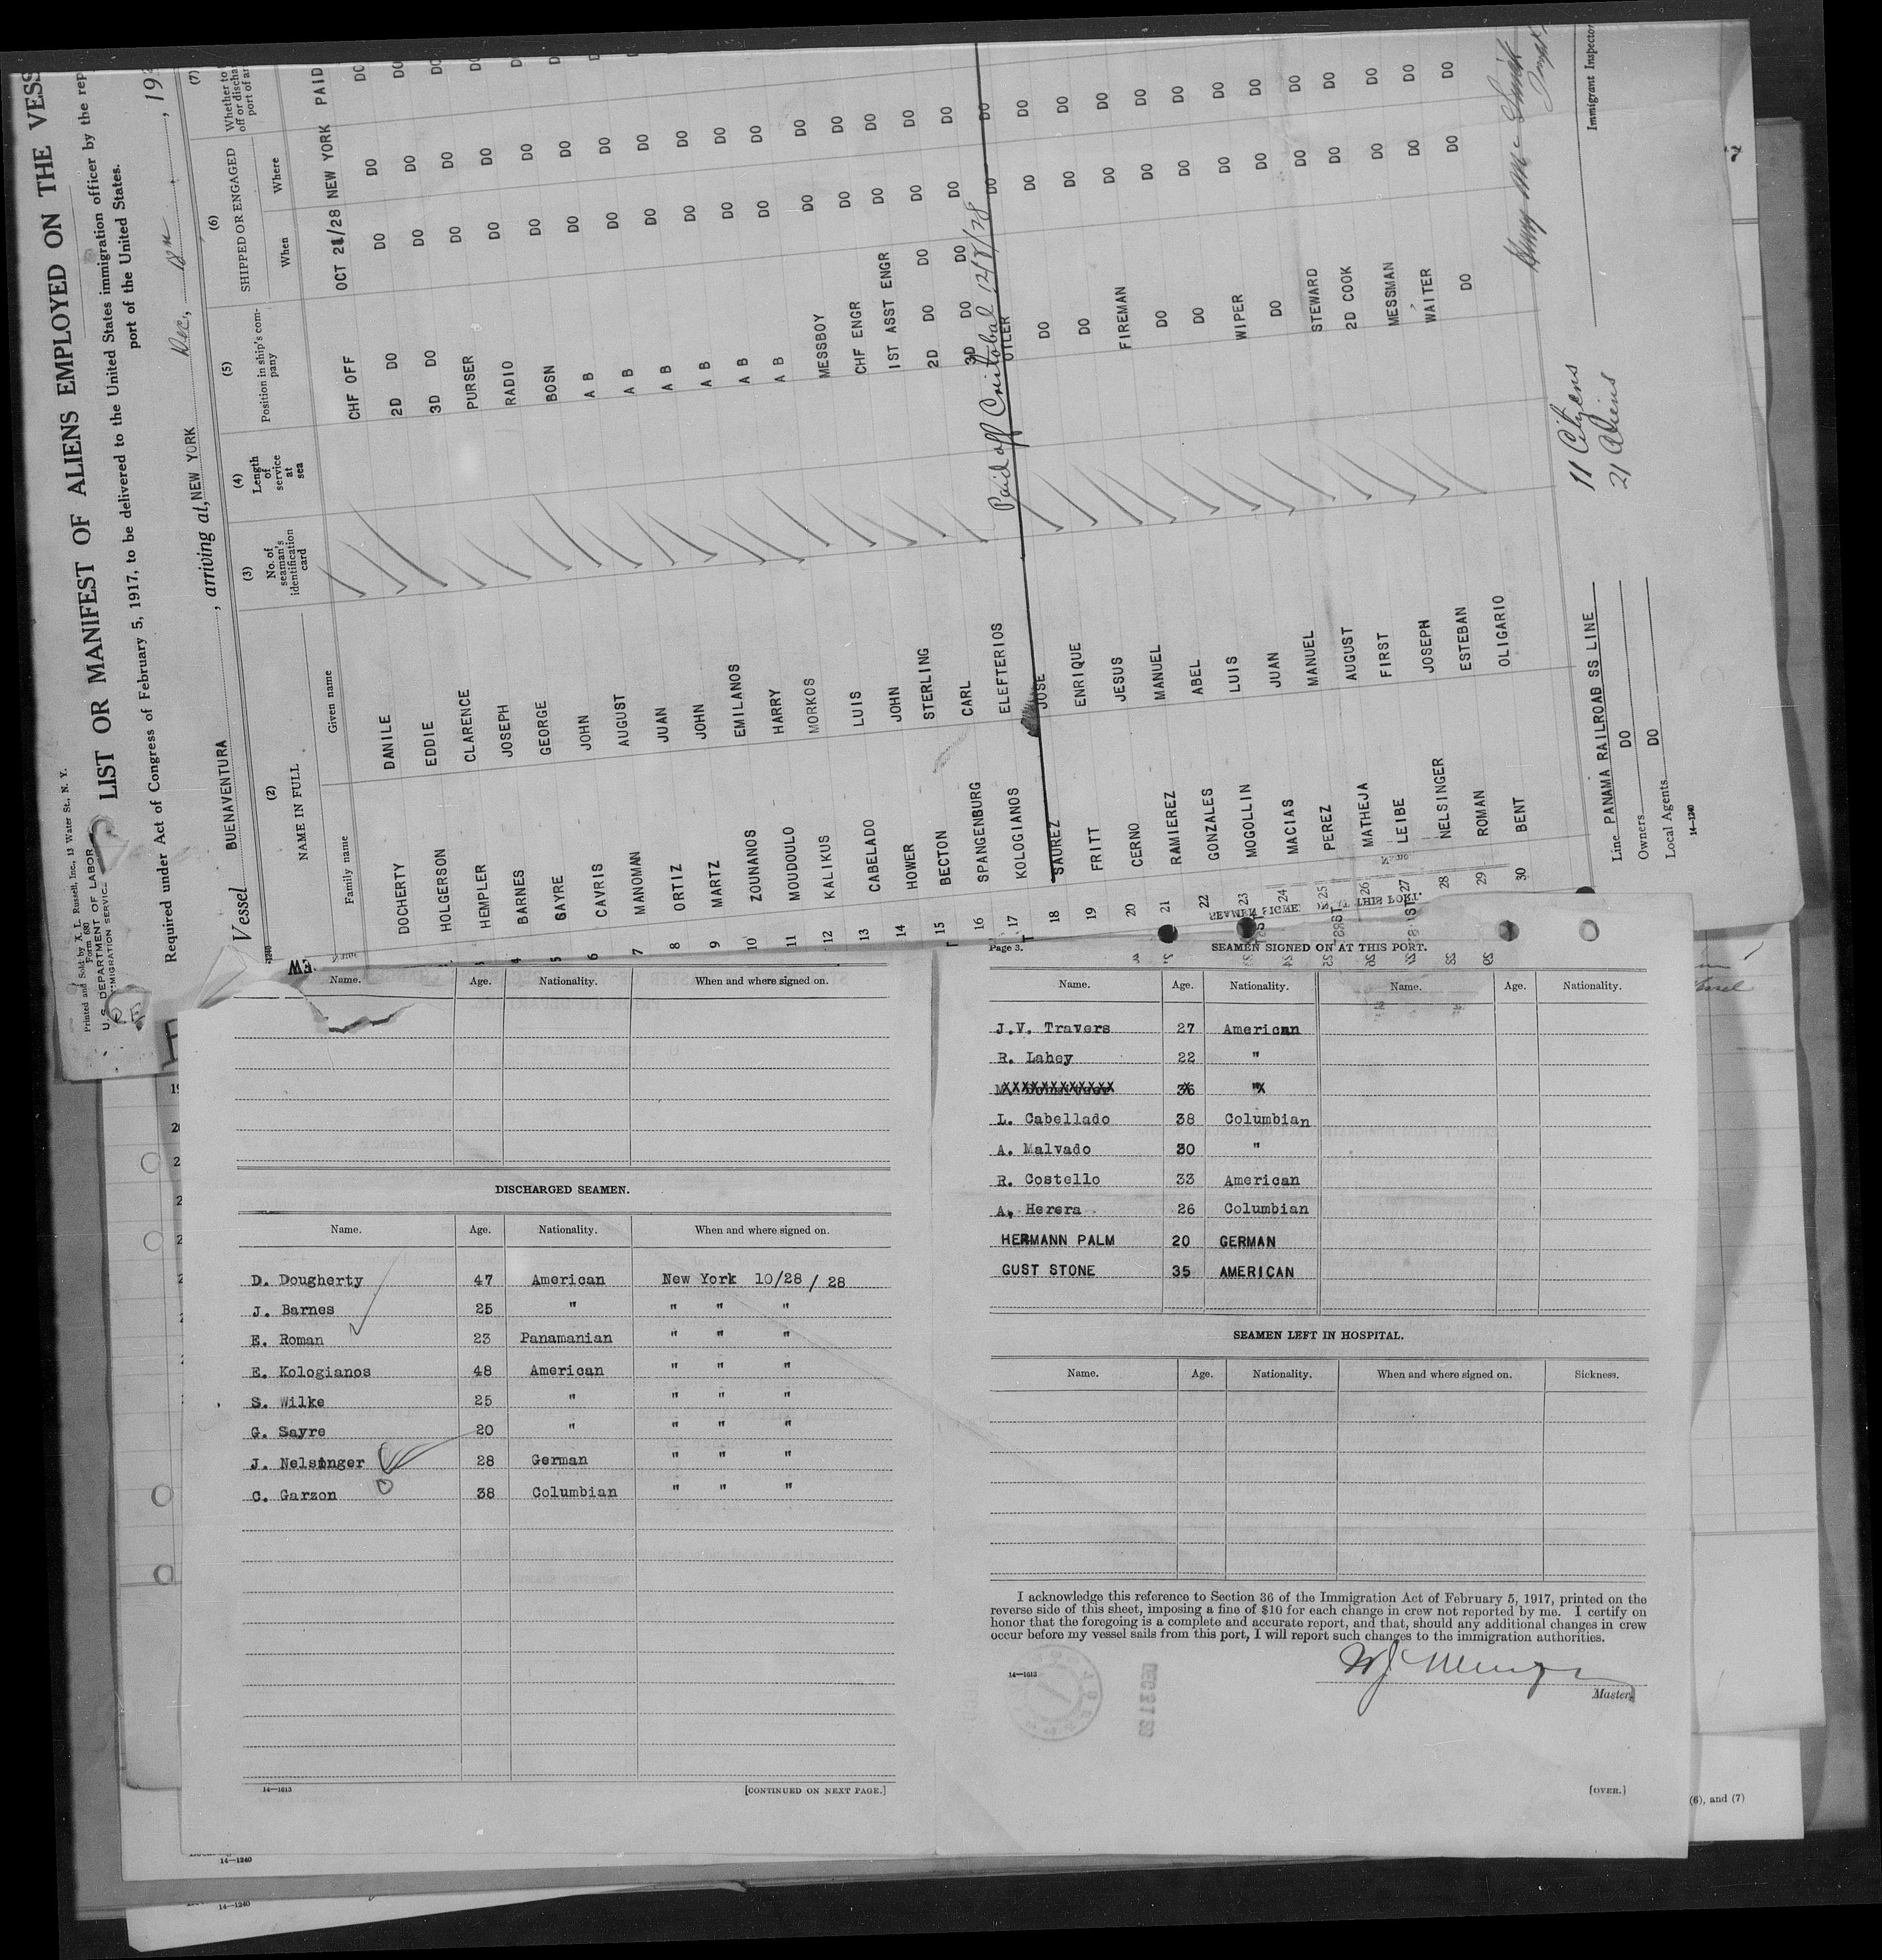 Printed and Sold by A. L. Russell, Inc., 13 Water St., N. Y.
Form 680
U. S. DEPARTMENT OF LABOR
IMMIGRATION SERVICE
LIST OR MANIFEST OF ALIENS EMPLOYED ON THE VESS
Required under Act of Congress of February 5, 1917, to be delivered to the United States immigration officer by the rep
port of the United States.
Vessel BUENAVENTURA, arriving at, NEW YORK Dec., , 19
(2) (3) (4) (5) (6) (7)
NAME IN FULL
Family name Given name
No. of seaman's identification card
Length of service at sea
Position in ship's company
SHIPPED OR ENGAGED
When Where
Whether to
off or discha
port of ar
DOCHERTY DANILE CHF OFF OCT 21/28 NEW YORK PAID
HOLGERSON EDDIE 2D DO DO DO DO
HEMPLER CLARENCE 3D DO DO DO DO
BARNES JOSEPH PURSER DO DO DO
SAYRE GEORGE RADIO DO DO DO
6 CAVRIS JOHN BOSN DO DO DO
7 MANOMAN AUGUST A B DO DO
8 ORTIZ JUAN A B DO DO
9 MARTZ JOHN A B DO DO
10 ZOUNANOS EMILANOS A B DO DO
11 MOUDOULO HARRY A B DO DO
12 KALIKUS MORKOS A B DO DO
13 CABELADO LUIS MESSBOY DO DO
14 HOWER JOHN CHF ENGR DO DO
15 BECTON STERLING 1ST ASST ENGR DO DO
16 SPANGENBURG CARL 2D DO DO DO DO
17 KOLOGIANOS ELEFTERIOS 3D DO DO DO DO
18 SAUREZ JOSE OILER DO DO
Paid off Cristobal 12/8/28
19 FRITT ENRIQUE DO DO DO DO
20 CERNO JESUS DO DO DO DO
21 RAMIEREZ MANUEL FIREMAN DO DO DO
22 GONZALES ABEL DO DO DO DO
23 MOGOLLIN LUIS DO DO DO DO
24 MACIAS JUAN WIPER DO DO DO
25 PEREZ MANUEL DO DO DO DO
26 MATHEJA AUGUST STEWARD DO DO DO
27 LEIBE FIRST 2D COOK DO DO DO
28 NELSINGER JOSEPH MESSMAN DO DO DO
29 ROMAN ESTEBAN WAITER DO DO DO
30 BENT OLIGARIO DO DO DO
11 Citizens
21 Aliens
Immigrant Inspector
Line PANAMA RAILROAD SS LINE
Owners DO
Local Agents DO
14—1240
Name. Age. Nationality. When and where signed on.
DISCHARGED SEAMEN.
Name. Age. Nationality. When and where signed on.
D. Dougherty 47 American New York 10/28/28
J. Barnes 25 " " " "
E. Roman 23 Panamanian " " "
E. Kologianos 48 American " " "
S. Wilke 25 " " " "
G. Sayre 20 " " " "
J. Nelsinger 28 German " " "
C. Garzon 38 Columbian " " "
14—1613 [CONTINUED ON NEXT PAGE.]
Page 3.
SEAMEN SIGNED ON AT THIS PORT.
Name. Age. Nationality. Name. Age. Nationality.
J.V. Travers 27 American
R. Lahey 22 "
36 "
L. Cabellado 38 Columbian
A. Malvado 30 "
R. Costello 33 American
A. Herera 26 Columbian
HERMANN PALM 20 GERMAN
GUST STONE 35 AMERICAN
SEAMEN LEFT IN HOSPITAL.
Name. Age. Nationality. When and where signed on. Sickness.
I acknowledge this reference to Section 36 of the Immigration Act of February 5, 1917, printed on the
reverse side of this sheet, imposing a fine of $10 for each change in crew not reported by me. I certify on
honor that the foregoing is a complete and accurate report, and that, should any additional changes in crew
occur before my vessel sails from this port, I will report such changes to the immigration authorities.
14—1613
DEC 31 28
Master.
[OVER.]
(6), and (7)
14—1240
14—1240